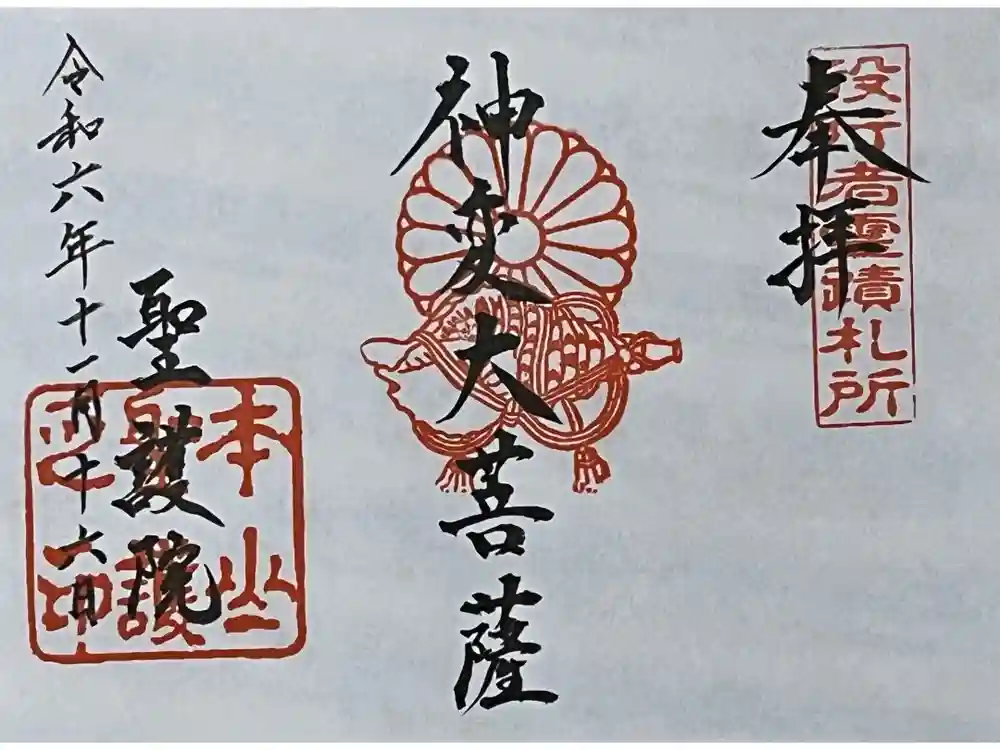 奉拝
役行者霊蹟札所
神変大菩薩
聖護院
本山
令和六年十一月十六日